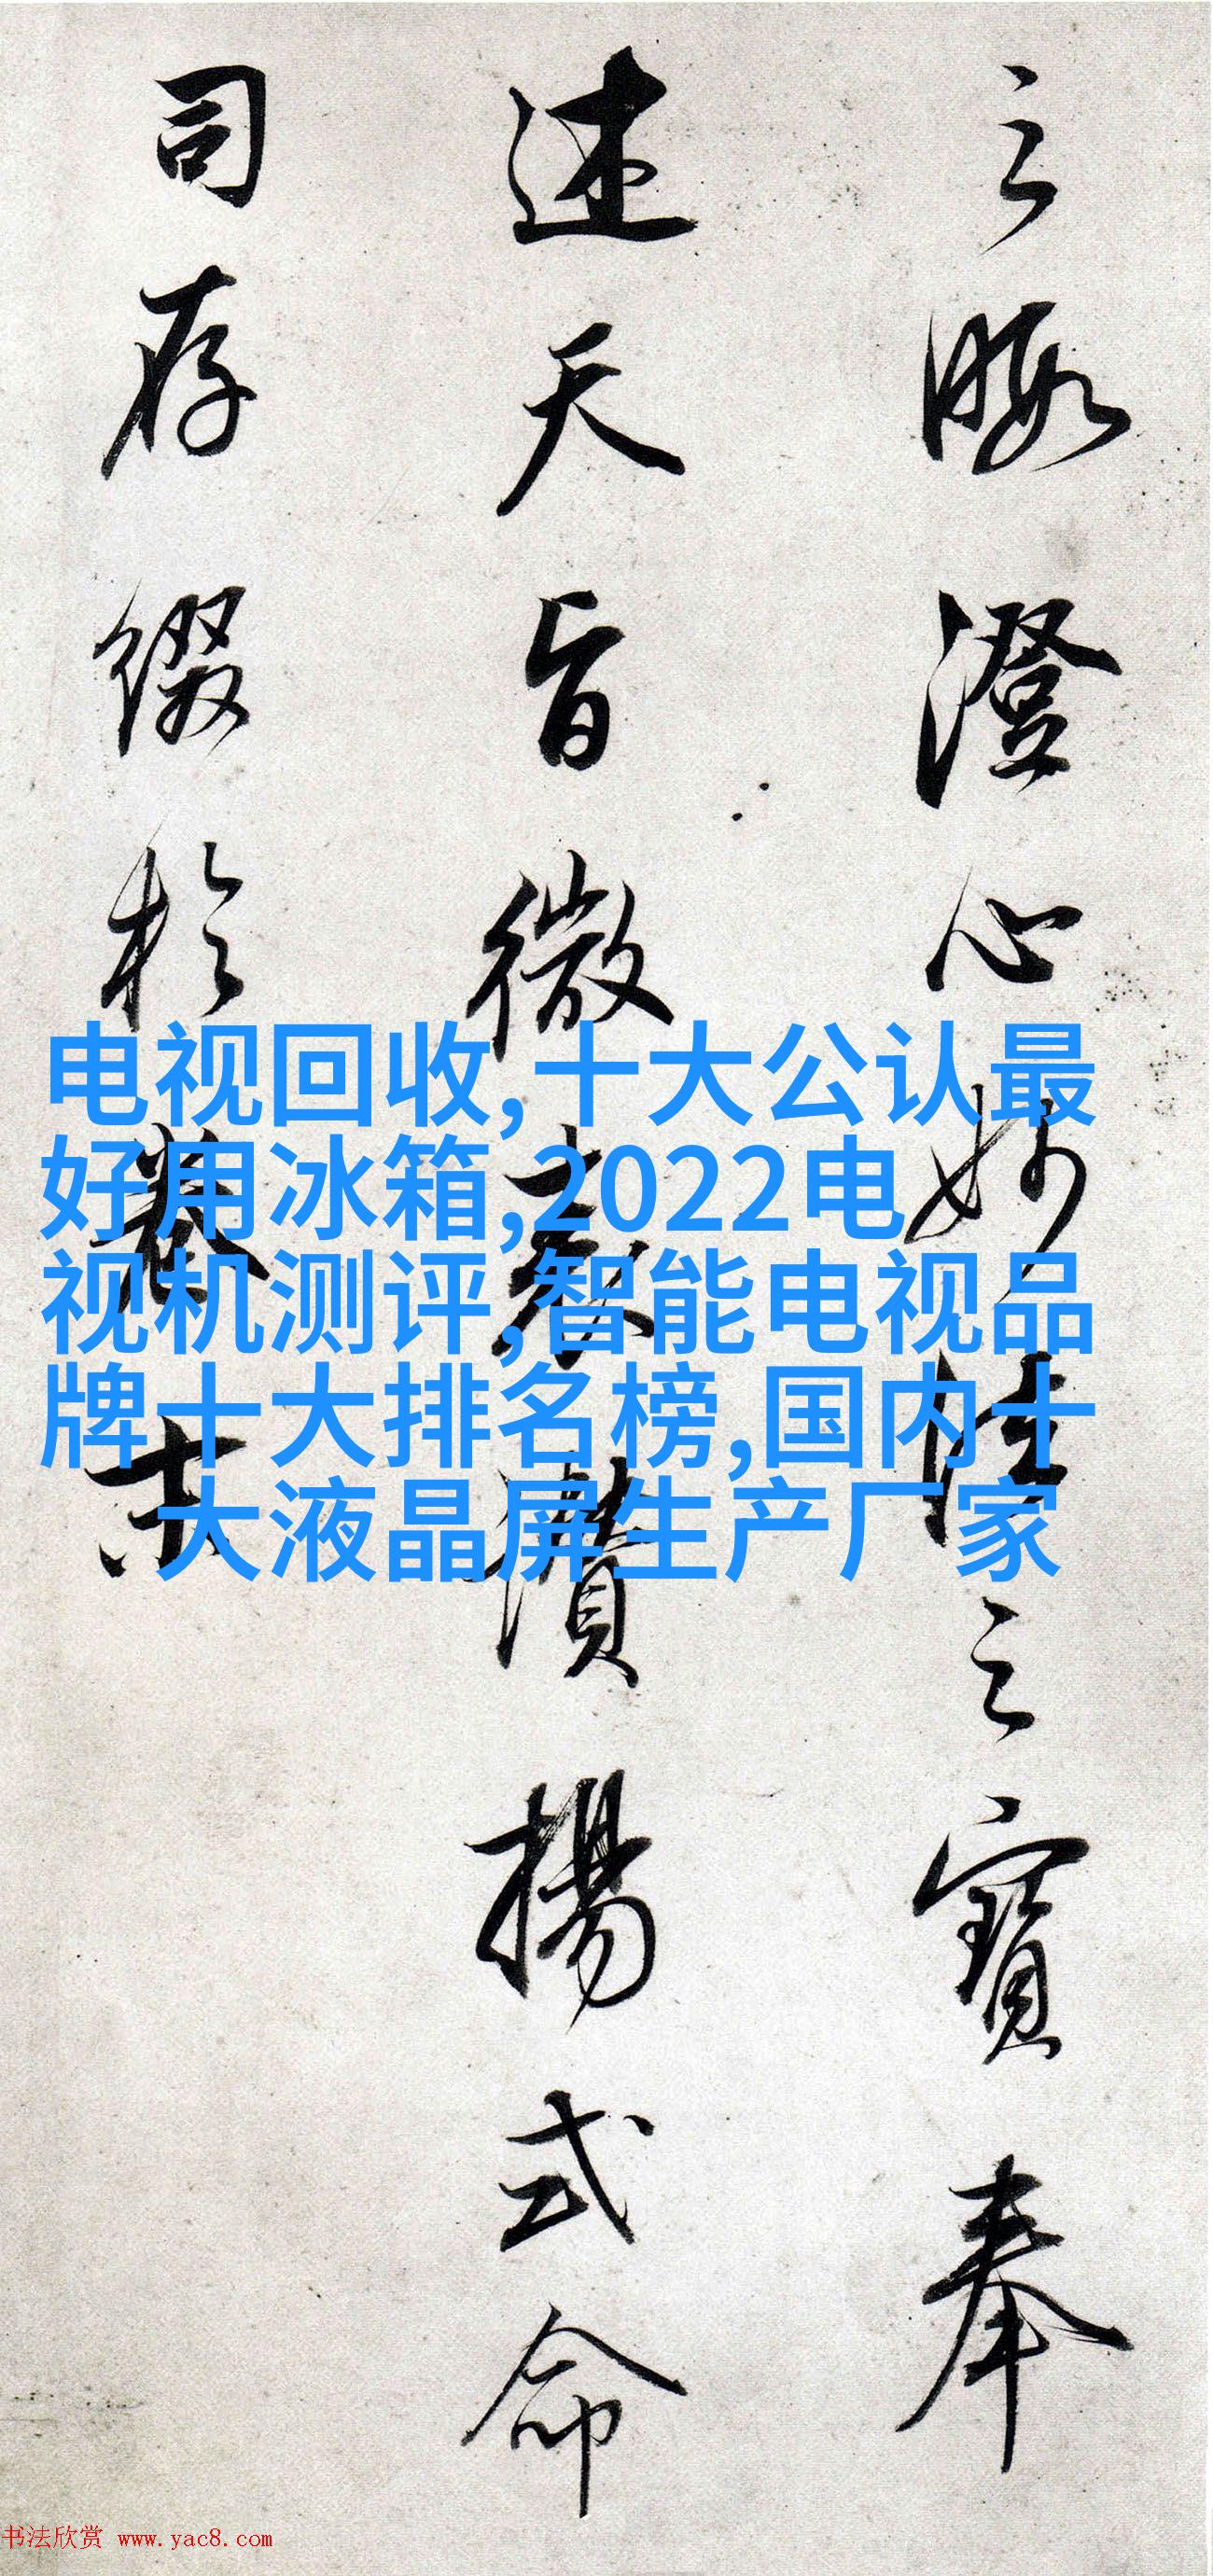 之暇澄心妙法之寶奉
述天旨微表讚揚式命
司存綴於卷末
电视回收,十大公认最
好用冰箱,2022电
视机测评,智能电视品
牌十大排名榜,国内十
大液晶屏生产厂家
书法欣赏 www.yac8.com